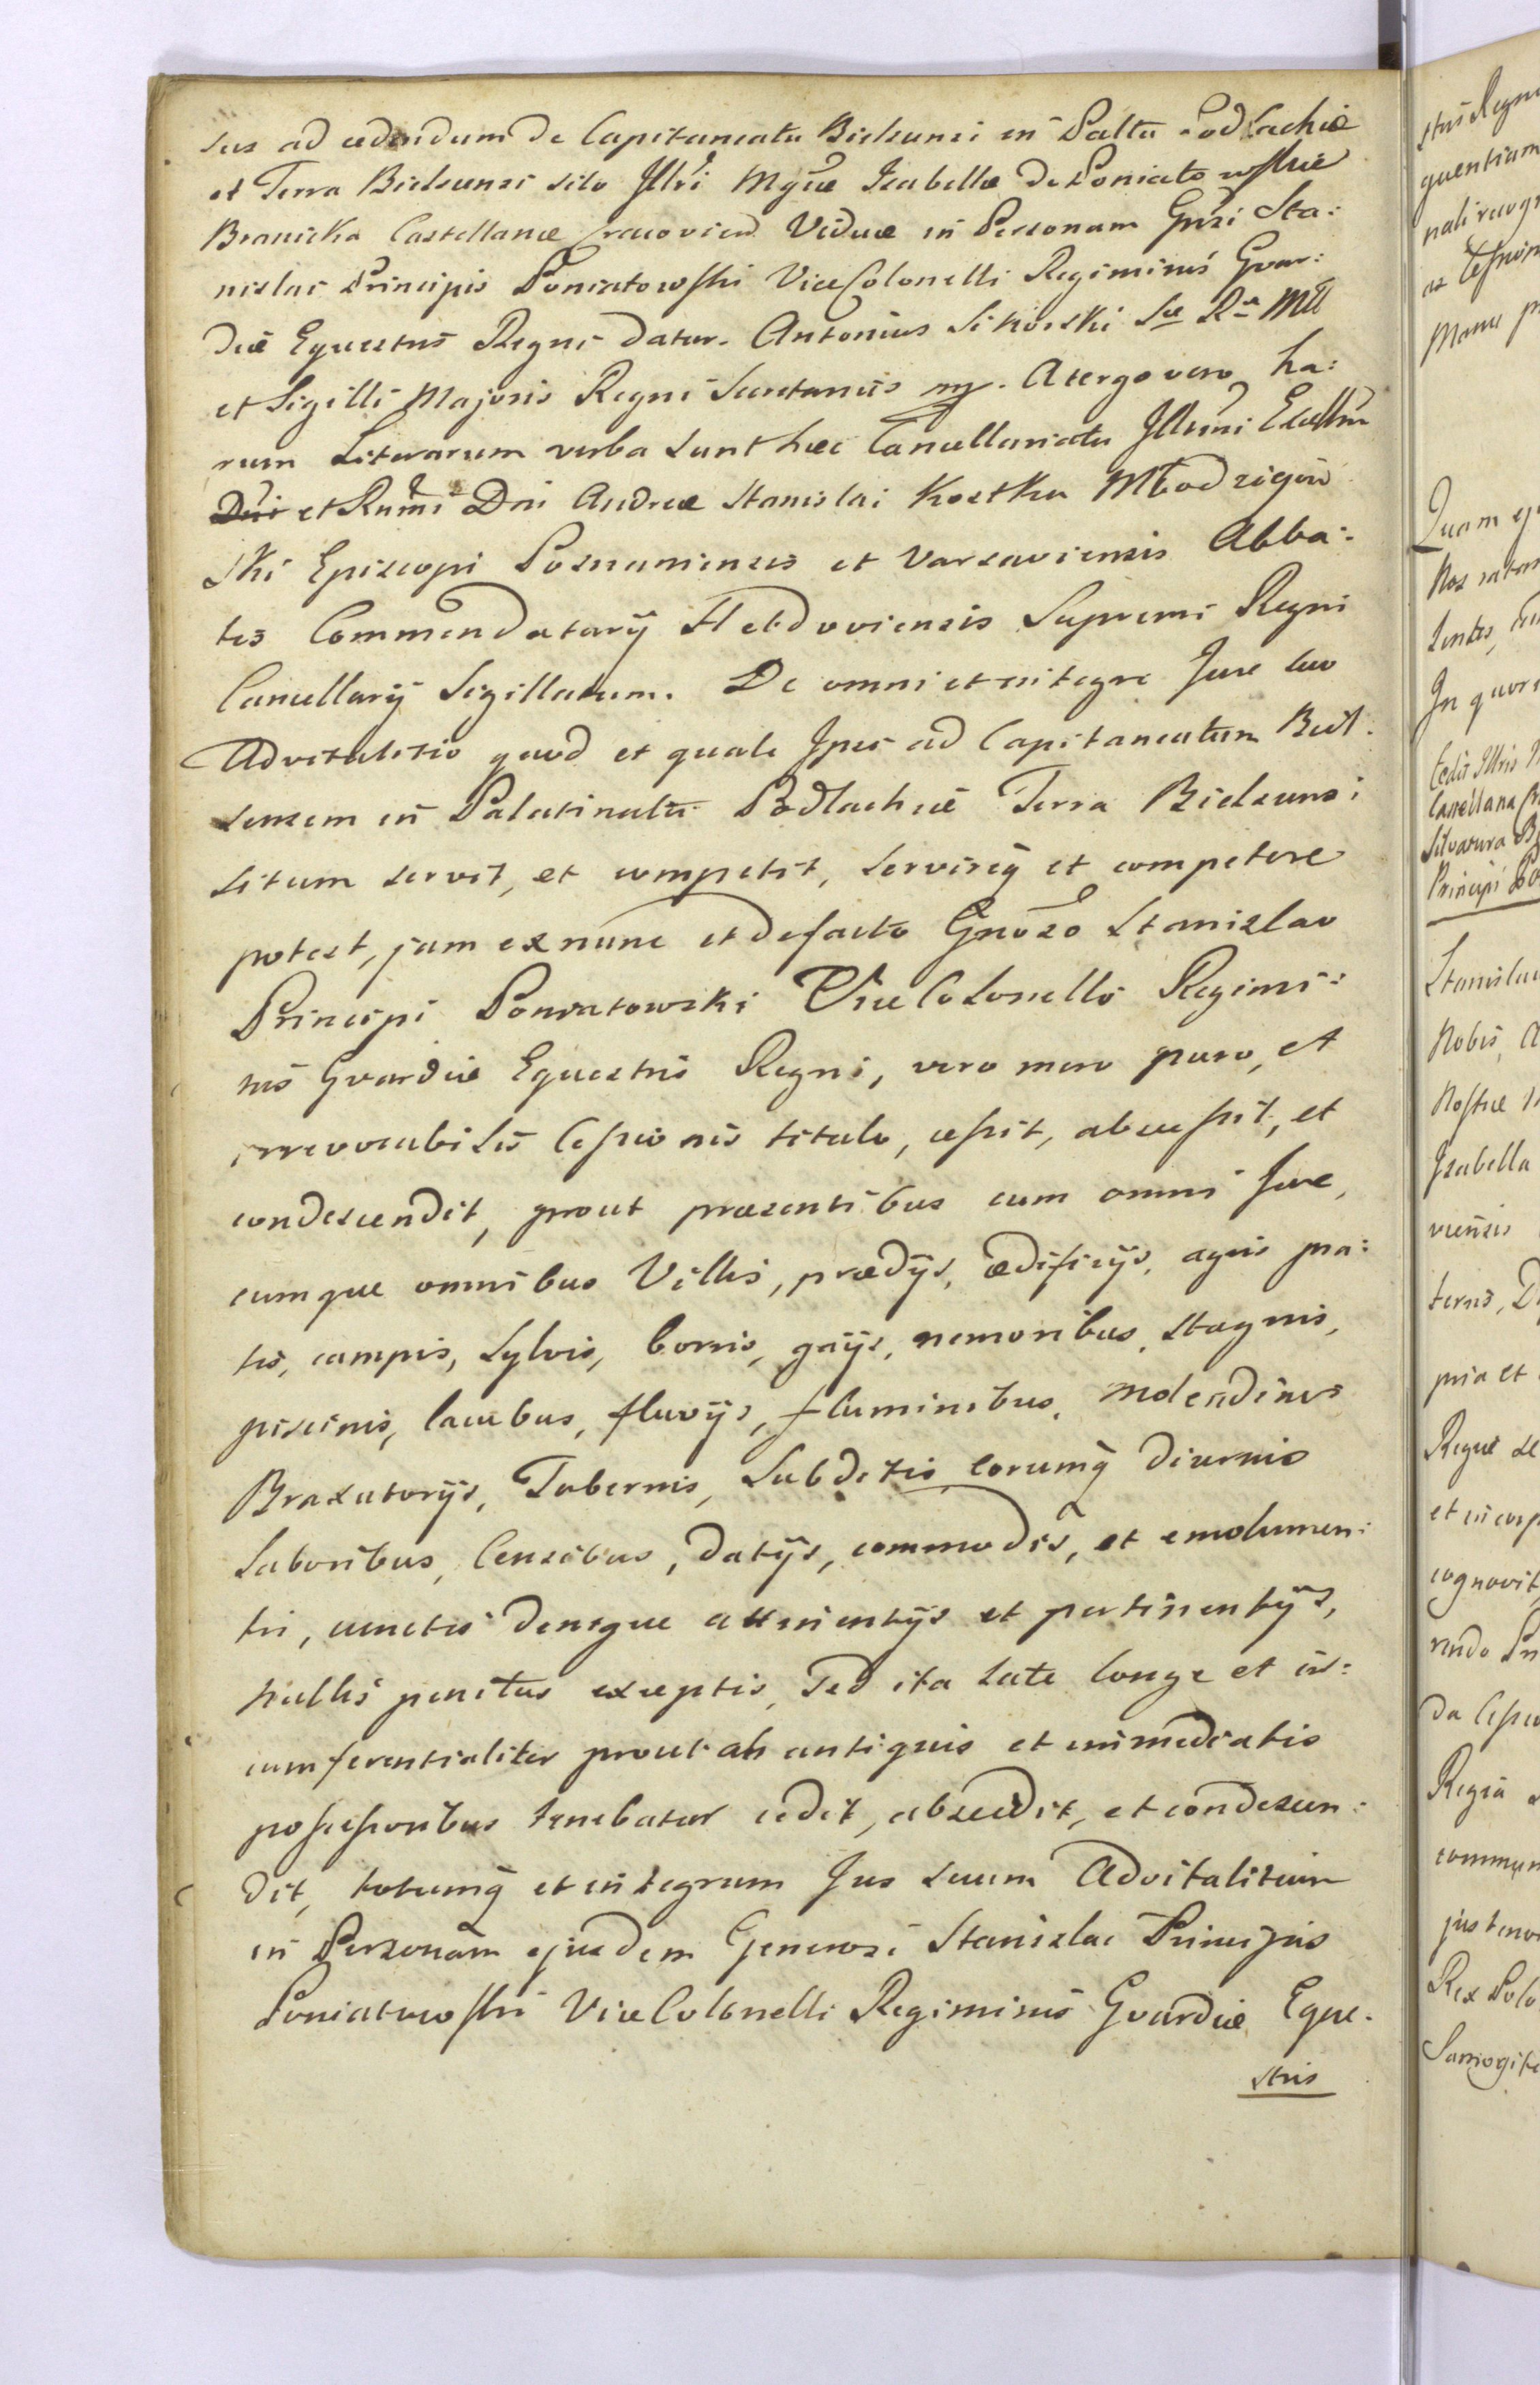 sus ad cedendum de Capitaneatu Bielsensi in Palltu Podlachiæ
et Terra Bielsensi sito Jllri Mgcæ Isabellæ de Poniatowskie
Branicka Castellanæ Cracovien Viduæ in Personam Gnsi Sta:
nislai Principis Poniatowski ViceColonelli Regiminis Gvar:
diæ Equestris Regni datur. Antonius Sikorski Sæ Ræ Mtt
et Sigilli Majoris Regni Secretarius mp. A tergo vero ha:
rum Literarum verba sunt hæc Cancellariatu Jllrmi Excellmi
et Rndmi Dni Andreæ Stanislai Kostka Młodziejow
ski Episcopi Posnaniensis et Varsaviensis Abba:
tis Commendatarij Hebdoviensis Supremi Regni
Cancellarij Sigillatum. De omni et integro Jure suo
Advitalitio quod et quale Ipsi ad Capitaneatum Biel:
sensem in Palatinatu Podlachiæ Terra Bielsensi
situm servit, et competit, servireq̃ et competere
potest, jam ex nunc et defacto Gnoso Stanislao
Principi Poniatowski ViceColonello Regimi:
nis Gvardiæ Equestris Regni, vero mero puro, et
irrevocabilis Cessionis titulo, cessit, abcessit, et
condescendit, prout præsentibus cum omni Jure,
cumque omnibus Villis, prædijs, ædificijs, agris pra:
tis, campis, sylvis, borris, gaijs, nemoribus, stagnis,
piscinis, lacubus, fluvijs, fluminibus, molendinis
Braxatorijs, Tabernis, Subditis eorumq̃ diurnis
Laboribus, Censibus, datijs, commodis, et emolumen:
tis, cunctis denique attinentijs et pertinentijs,
nullis penitus exceptis, sed ita late longe et cir:
cumferentialiter prout ab antiquis et immediatis
possessoribus tenebatur cedit, abscedit, et condescen:
dit, totumq̃ et integrum Jus suum Advitalitium
in Personam ejusdem Generosi Stanislai Principis
Poniatowski ViceColonelli Regiminis Gvardiæ Eque:
stris